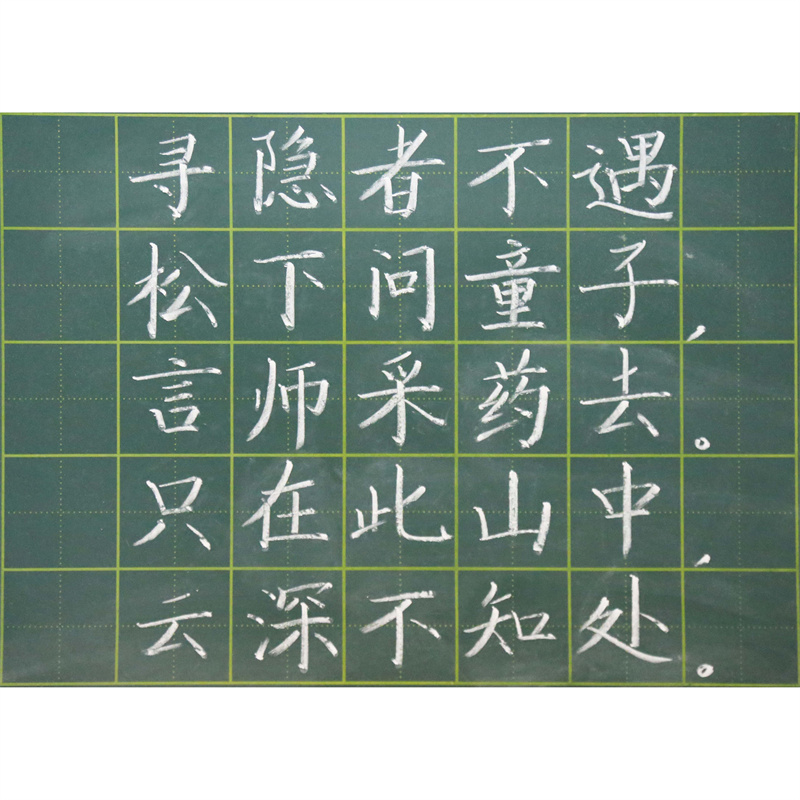 寻隐者不遇
松下问童子,
言师采药去。
只在此山中,
云深不知处。